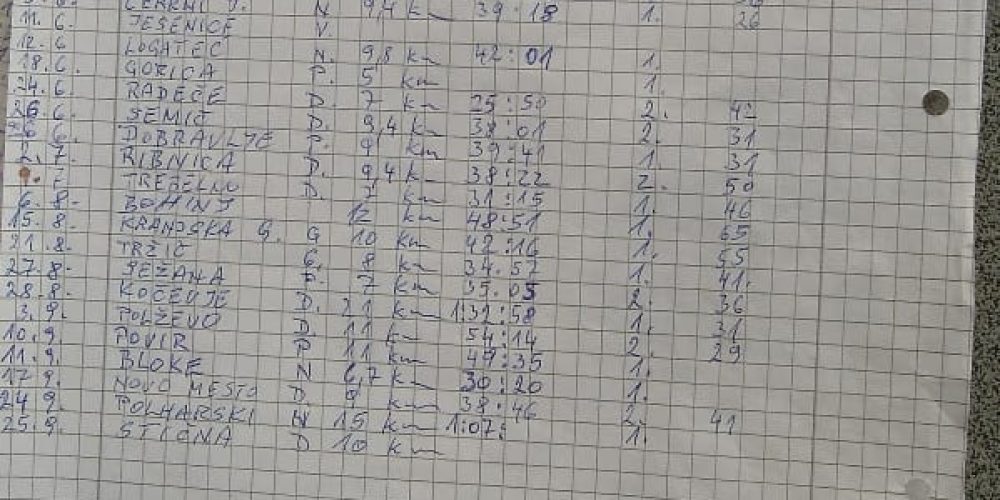 ČERKNI J. N 9,4 km 39:18 1.
11.6. JESENICE V. 26
12.6 LOGATEC N. 9,8 km 42:01 1.
18.6. GORICA P. 5 km 1.
24.6. RADEČE D. 7 km 25:50 2. 42
26.6 SEMIČ D. 9,4 km 38:01 2. 31
26 6. DOBRAVLJE P 9 km 39:41 1. 31
2.7. RIBNICA D. 9,4 km 38:22 2. 50
TREBELNO D. 7 km 31:15 1. 46
6.8. BOHINJ 12 km 48:51 1. 65
15.8. KRANJSKA G. G 10 km 42:16 1. 55
21.8. TRŽIČ G. 8 km 34.57 1. 41.
27.8. SEŽANA P. 7 km 35.05 2. 36
28.8. KOČEVJE D. 21 km 1:31:58 1. 31
3.9. POLŽEVO D 11 km 54:14 2. 29
10.9. POVIR P 11 km 49:35 1.
11.9. BLOKE N 6,7 km 30:20 1.
17.9. NOVO MESTO D. 9 km 38:46 2. 41
24.9. POLHARSKI N 15 km 1:07: 1.
25.9. STIČNA D 10 km